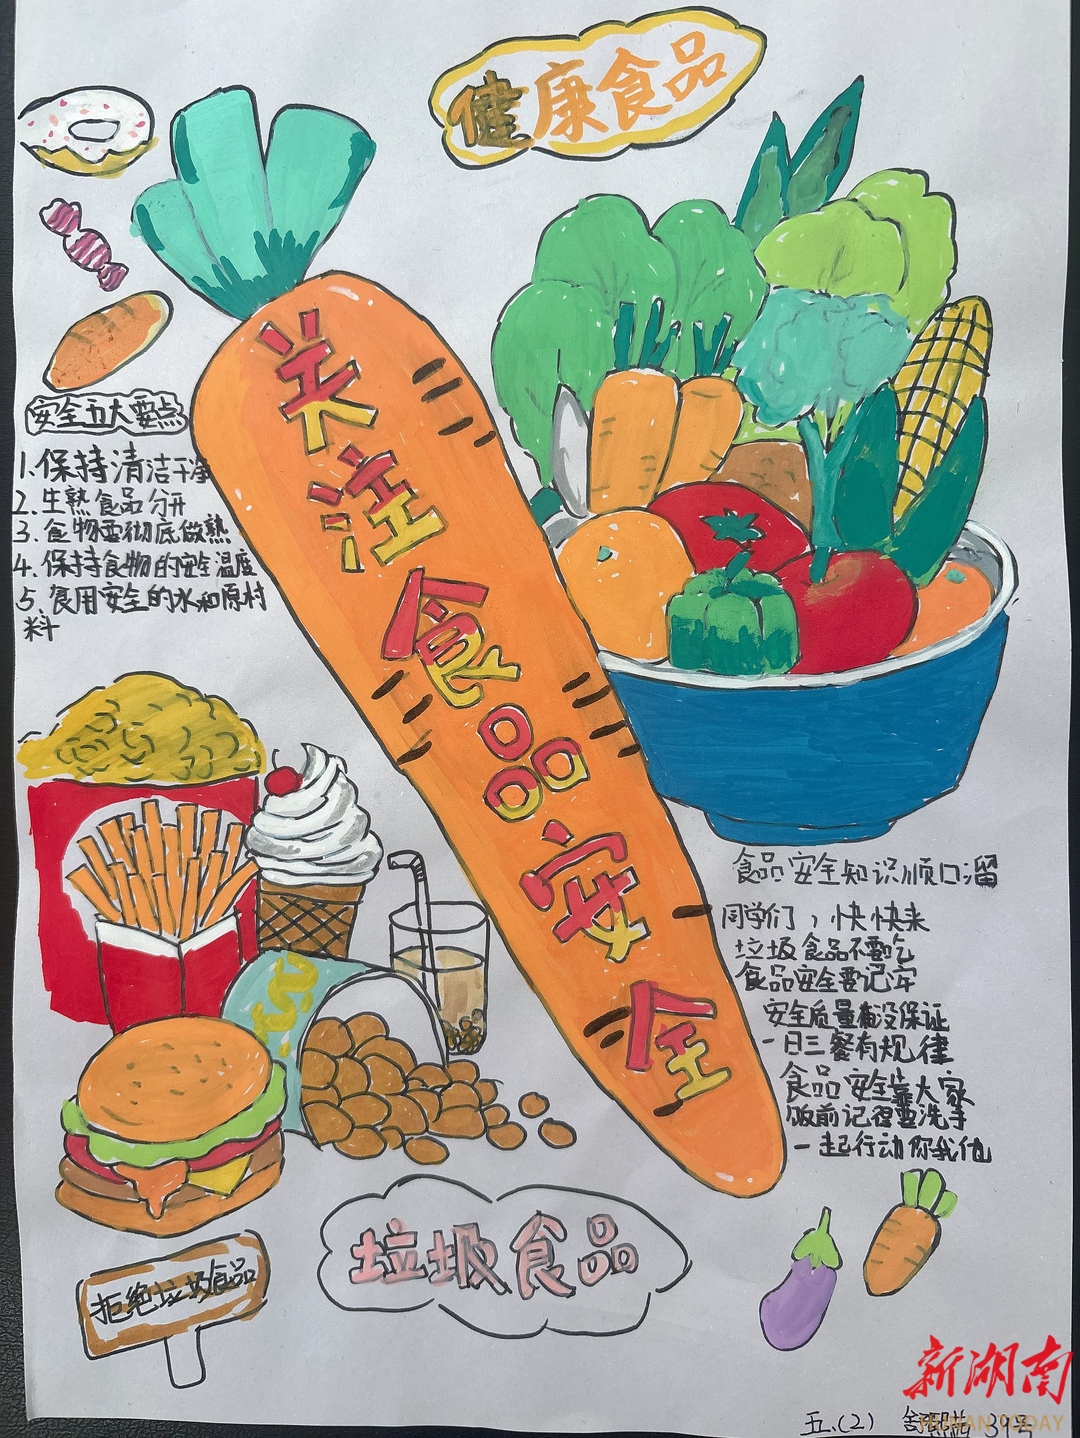 健康食品
关注食品安全
安全五大要点
1.保持清洁干净
2.生熟食品分开
3.食物要彻底做熟
4.保持食物的安全温度
5.食用安全的水和原材
料
食品安全知识顺口溜
同学们，快快来
垃圾食品不要吃
食品安全要记牢
安全质量有没保证
一日三餐有规律
食品安全靠大家
饭前记得要洗手
一起行动你我他
垃圾食品
拒绝垃圾食品
新湖南
HUNAN TODAY
五.(2) 舒 39号